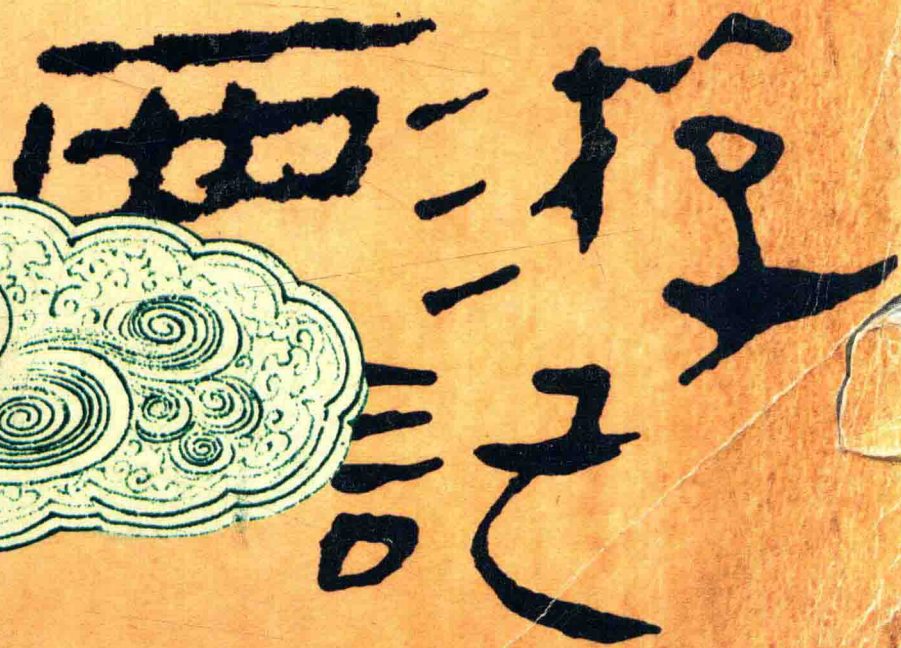 西游記